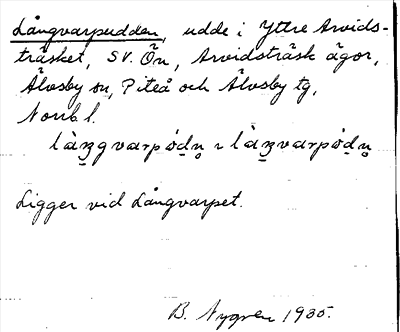 Långvarpudden, udde i Yttre Arvids-
träsket, SV. Ön, Arvidsträsk ägor,
Älvsby sn, Piteå och Älvsby tg,
Norrb l.
làŋgvarpódn̥ ~ làŋvarpódn̥
Ligger vid Långvarpet.
B. Nygren 1935.